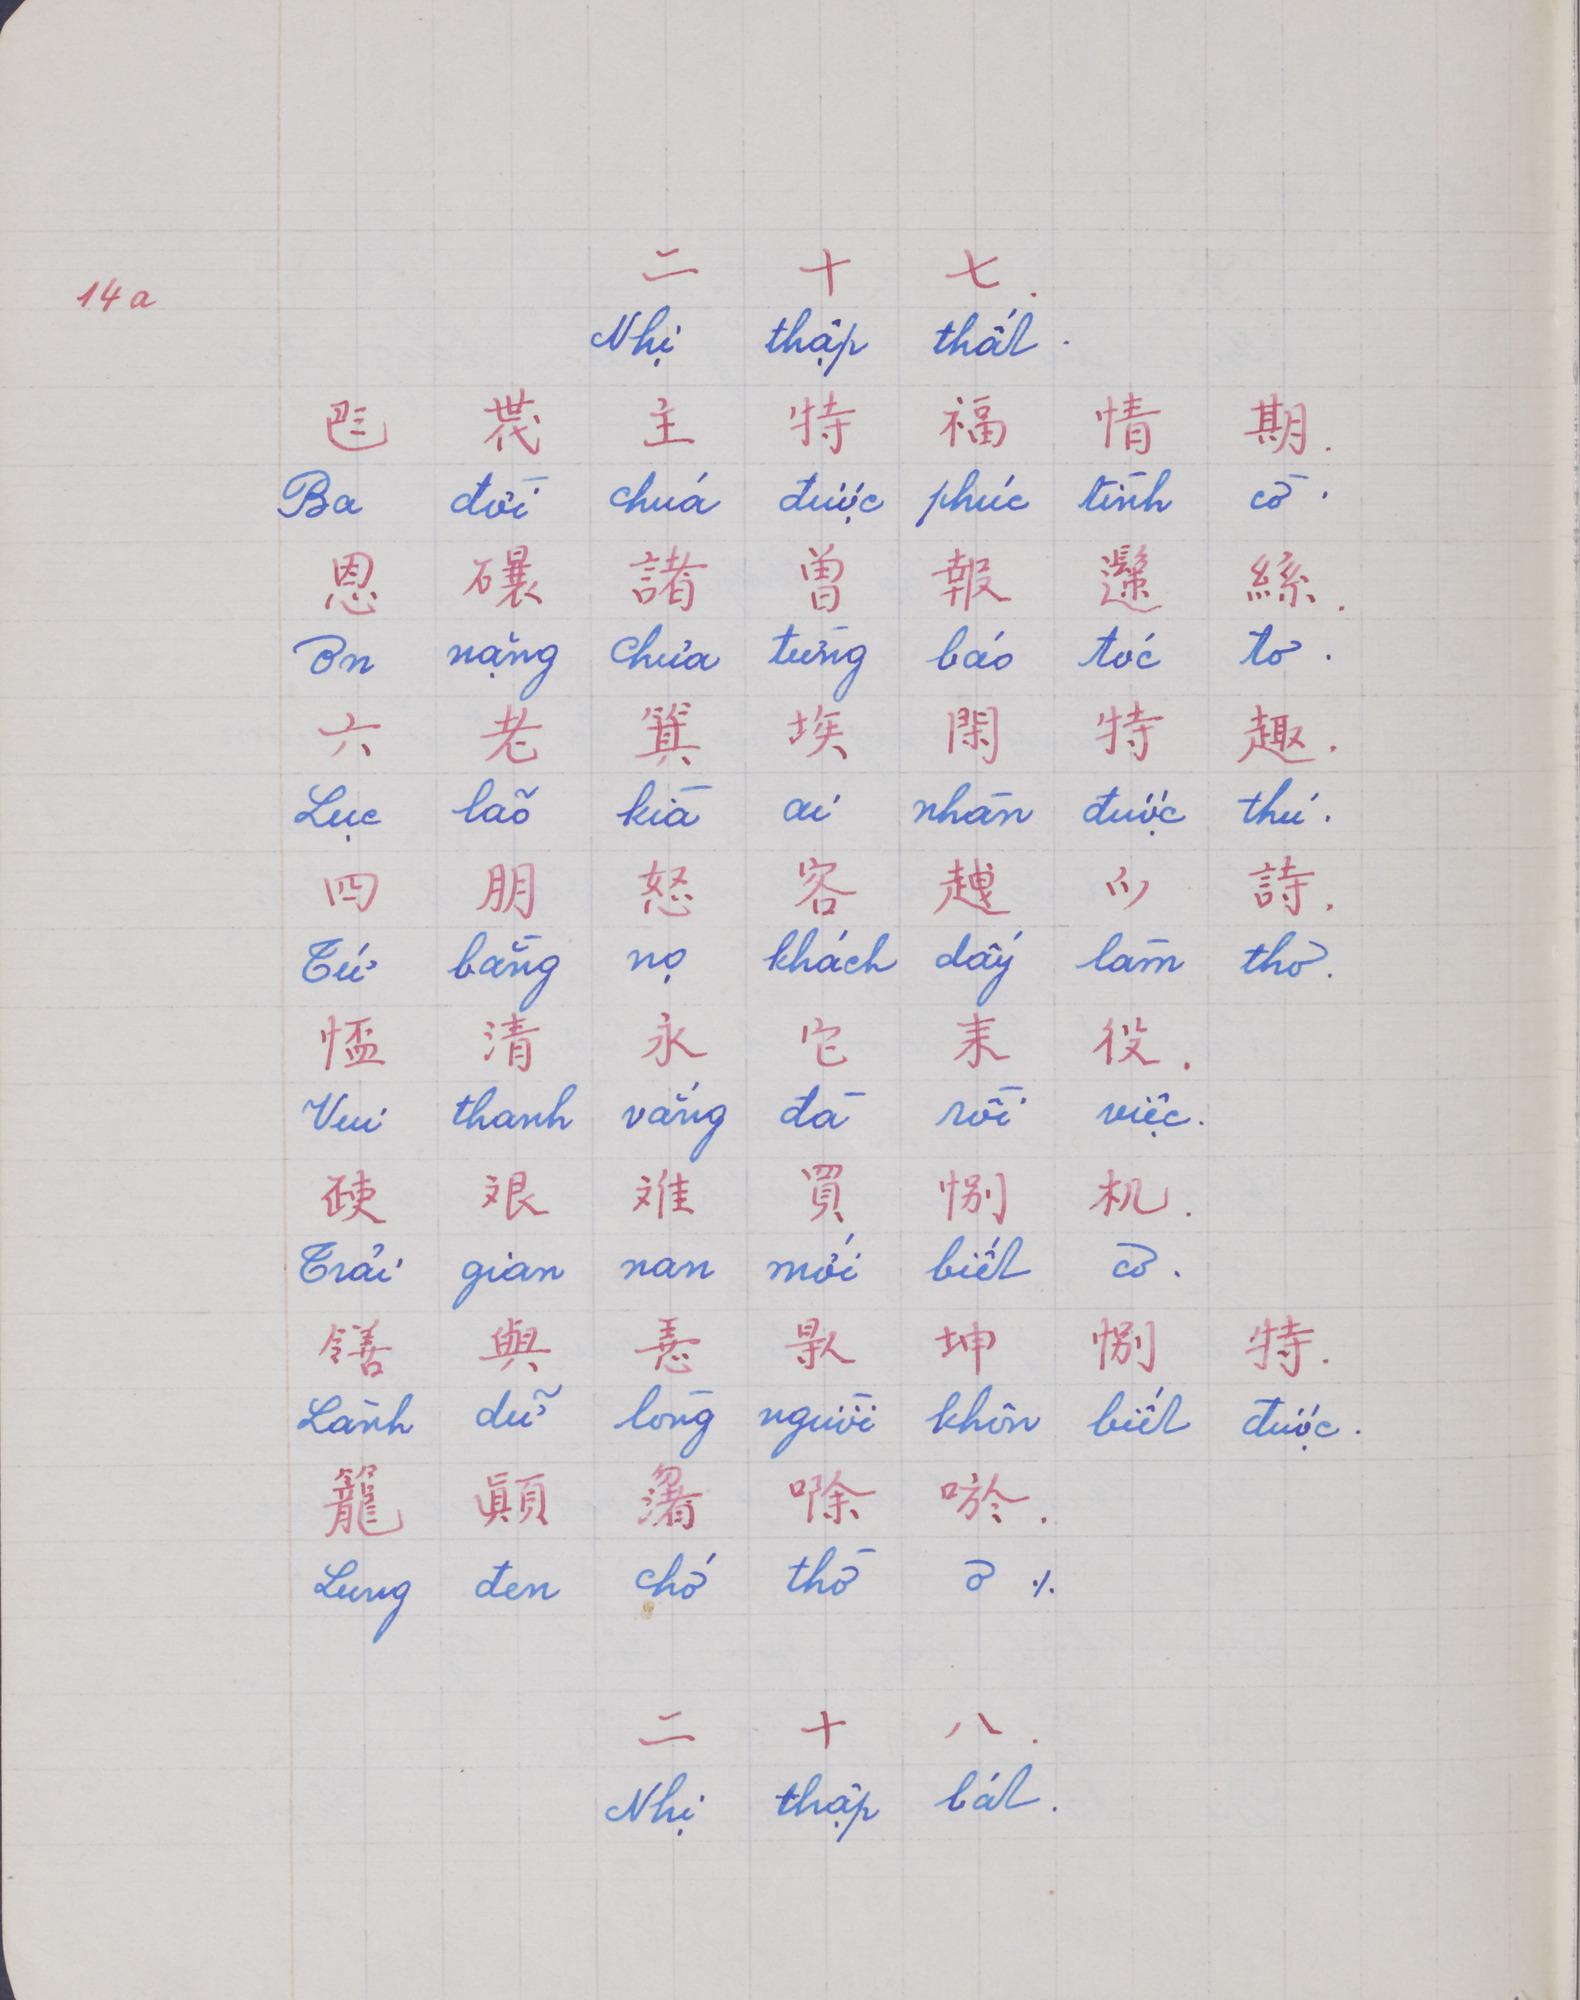 14a
二 十 七.
Nhị thập thất.
𠀧 𠁀 主 特 福 情 期.
Ba đời chuá được phúc tình cờ.
恩 𥗾 諸 曾 報 絲.
Ơn nặng chửa từng báo tóc tơ.
六 老 箕 埃 閑 特 趣.
Lục lão kià ai nhàn được thú.
四 朋 怒 客 𧽈 詩.
Tứ bằng nọ khách dấy làm thơ.
清 永 它 耒 役.
Vui thanh vắng đà rồi việc.
艰 难 買 別 机.
Trải gian nan mới biết cơ.
與 坤 別 特.
Lành dữ lòng người khôn biết được.
籠 顛 㗂於.
Lưng đen chớ thờ ơ ./.
二 十 八.
Nhị thập bát.